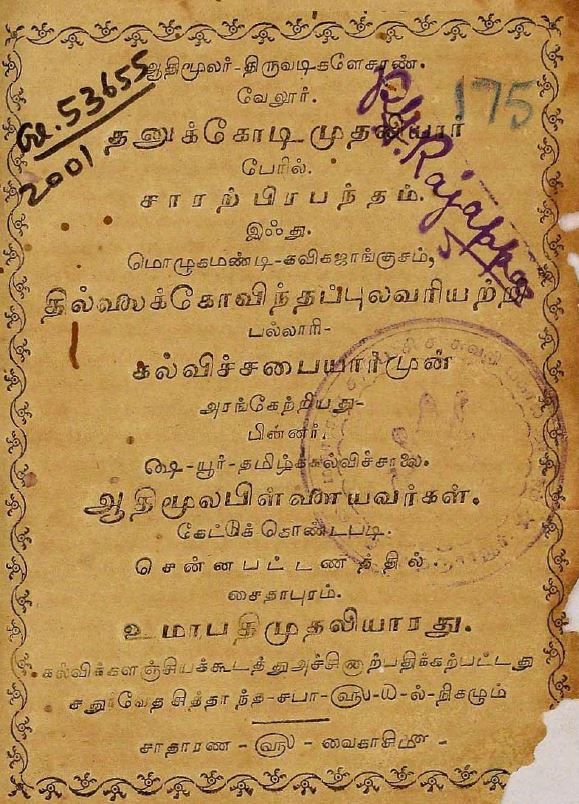 ஆதிமூலர்-திருவடிகளேசரண்.
வேலூர்.
தனுக்கோடிமுதலியார்
பேரில்.
சாரற்பிரபந்தம்.
இஃது.
மொழுகமண்டி-கவிகஜாங்குசம்,
தில்லைக்கோவிந்தப்புலவரியற்றி
பல்லாரி-
கல்விச்சபையார்முன்
அரங்கேற்றியது-
பின்னர்.
ஷை-யூர்-தமிழ்க்கல்விச்சாலை.
ஆதிமூலபிள்ளையவர்கள்.
கேட்டுக்கொண்டபடி.
சென்னபட்டணத்தில்
சைதாபுரம்.
உமாபதிமுதலியாரது.
கல்விக்களஞ்சியக்கூடத்துஅச்சினாற்பதிக்கற்பட்டது
சதுர்வேதசித்தாந்த-சபா-௵-ல்-நிகழும்
சாதாரண-௵-வைகாசி௴-
53655
2001
175
Rajappa